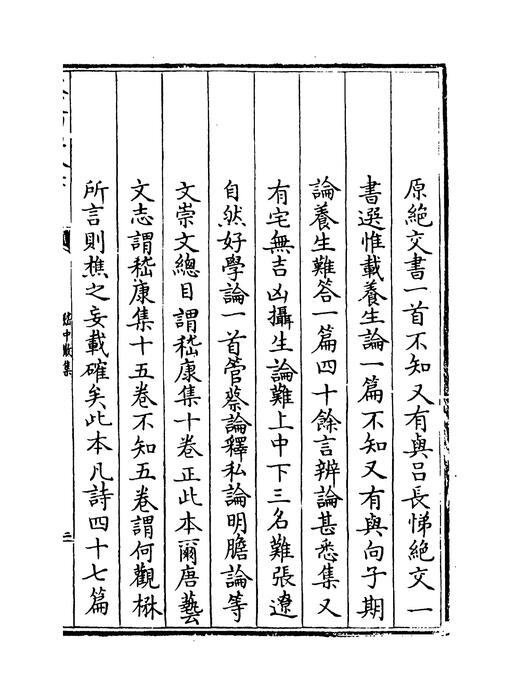 原絶交書一首不知又有與吕長悌絶交一
書選惟載養生論一篇不知又有與向子期
論養生難答一篇四十餘言辨論甚悉集又
有宅無吉凶攝生論難上中下三名難張遼
自然好學論一首管蔡論釋私論明膽論等
文崇文總目謂嵇康集十卷正此本爾唐藝
文志謂嵇康集十五卷不知五卷謂何觀楙
所言則樵之妄載確矣此本凡詩四十七篇
嵇中散集
二